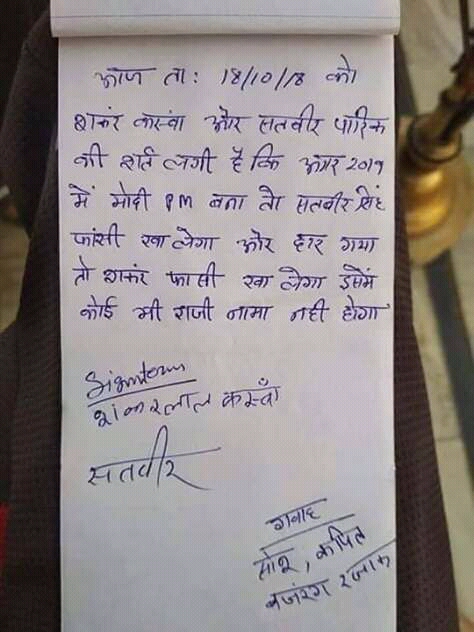 आज ता: 18/10/18 को
शकंर कस्वां और सतवीर पारिक
की शर्त लगी है कि अगर 2019
में मोदी PM बना तो सतवीर सिंह
फांसी खा लेगा और हार गया
तो शकंर फासी खा लेगा इसमें
कोई भी राजी नामा नही होगा
शंकरलाल कस्वाँ
सतवीर
गवाह
कपिल
बजंरग रजाक